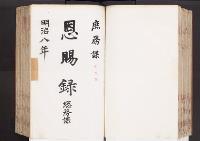 庶務課
恩賜録
総務課
明治八年